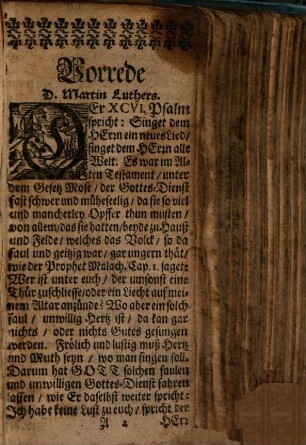 Vorrede
D. Martin Luthers.
DEr XCVI. Psalm
spricht: Singet dem
HErrn ein neues Lied/
singet dem HErrn alle
Welt. Es war im Al-
ten Testament / unter
dem Gesetz Mose / der Gottes-Dienst
fast schwer und müheseelig / da sie so viel
und mancherley Opffer thun musten /
von allem / das sie hatten / beyde zu Hauß
und Felde / welches das Volck / so da
faul und geitzig war / gar ungern thät/
wie der Prophet Malach. Cap. 1. saget:
Wer ist unter euch / der umsonst eine
Thür zuschliesse/oder ein Liecht auf mei-
nem Altar anzünde? Wo aber ein solch
faul / unwillig Hertz ist / da kan gar
nichts / oder nichts Gutes gesungen
werden. Frölich und lustig muß Hertz
und Muth seyn / wo man singen soll.
Darum hat GOTT solchen faulen
und unwilligen Gottes-Dienst fahren
lassen / wie Er daselbst weiter spricht:
Ich habe keine Lust zu euch / spricht der
A 2 HErr